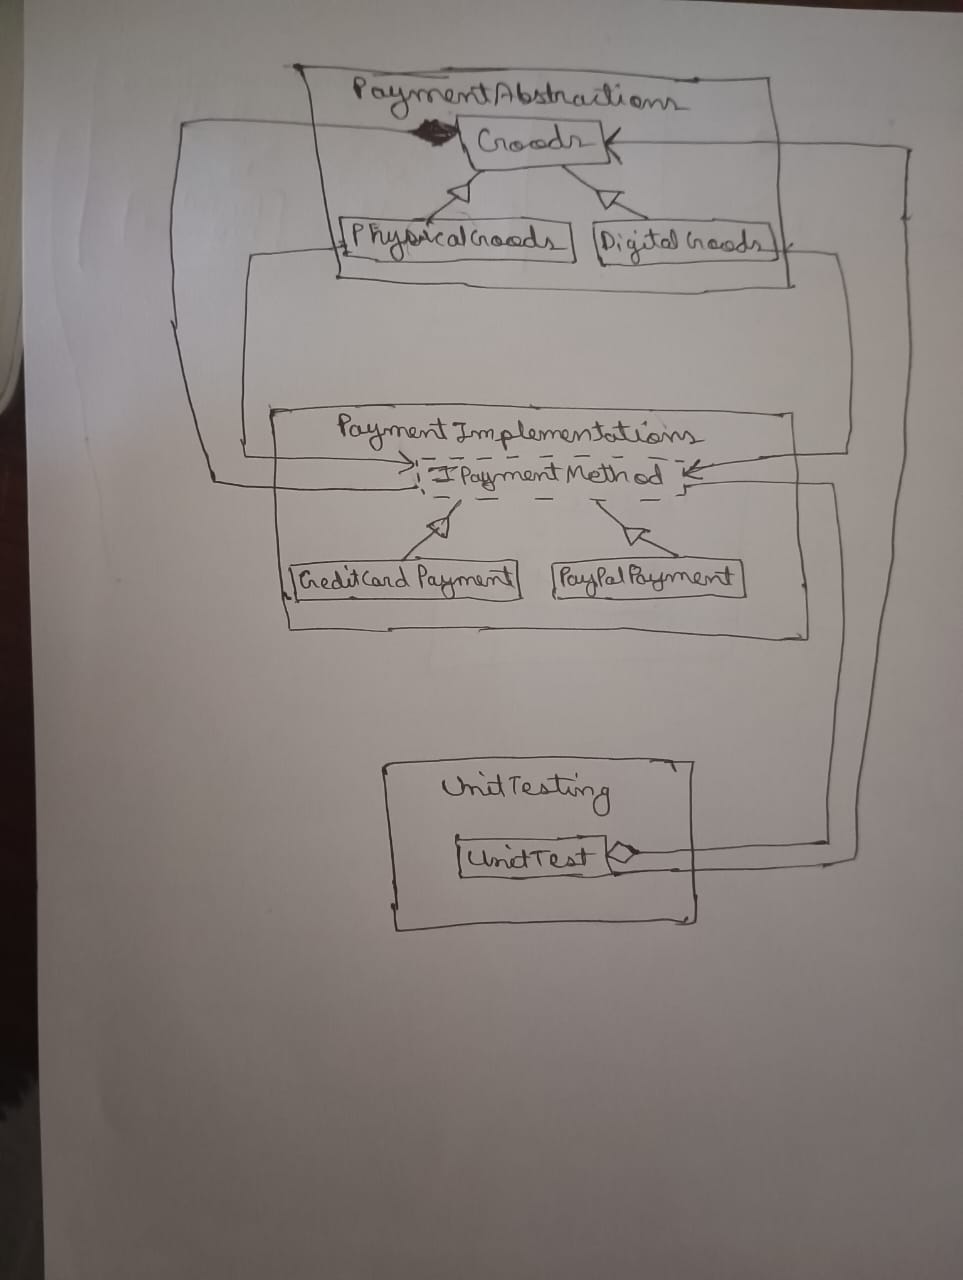 PaymentAbstractions
Goods
PhysicalGoods
DigitalGoods
PaymentImplementations
IPaymentMethod
CreditCardPayment
PayPalPayment
UnitTesting
UnitTest